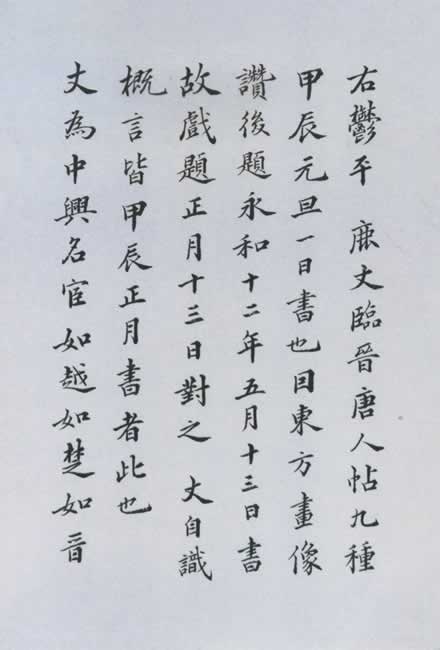 右鬱平 丈臨晉唐人帖九種
甲辰元旦一日書也囙東方畫像
讚後題永和十二年五月十三日書
故戲題正月十三日對之 丈自識
概言皆甲辰正月書者此也
丈為中興名宦如越如楚如晉